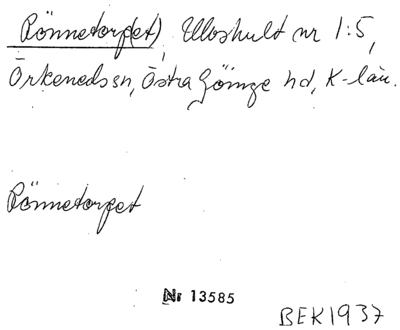 Rönnetorp(et), Ulvshult nr 1:5,
Örkeneds sn, Östra Göinge hd, K-län.
Rönnetorpet
Nr 13585
BEK1937